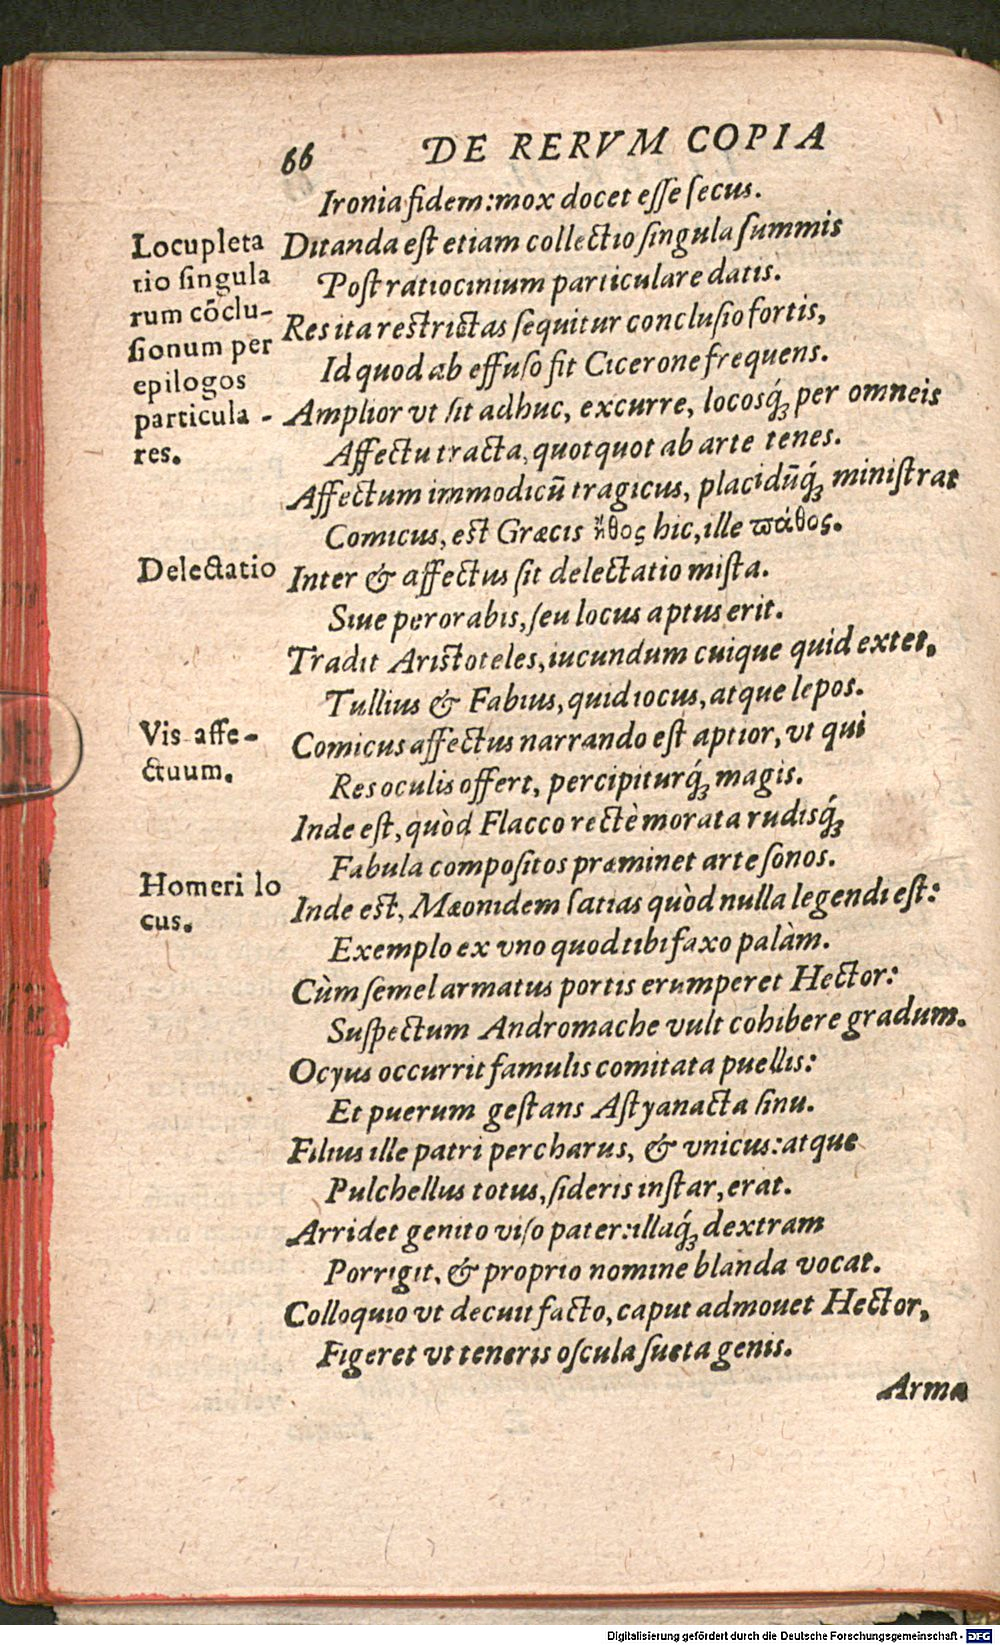 66 DE RERVM COPIA
Ironia fidem: mox docet eſſe ſecus.
Locupleta
tio ſingula
rum cōclu-
ſionum per
epilogos
particula -
res.
Ditanda eſt etiam collectio ſingula ſummis
Poſt ratiocinium particulare datis.
Res ita reſtrictas ſequitur concluſio fortis,
Id quod ab effuſo fit Cicerone frequens.
Amplior vt ſit adhuc, excurre, locosq́ꝫ per omneis
Affectu tracta, quotquot ab arte tenes.
Affectum immodicū tragicus, placidūq́ꝫ miniſtrat
Comicus, eſt Græcis ἦθος hic, ille ϖάθος.
Delectatio
Inter & affectus ſit delectatio miſta.
Siue perorabis, ſeu locus aptus erit.
Tradit Ariſtoteles, iucundum cuique quid extet,
Tullius & Fabius, quid iocus, atque lepos.
Vis affe-
ctuum.
Comicus affectus narrando eſt aptior, vt qui
Res oculis offert, percipiturq́ꝫ magis.
Inde eſt, quòd Flacco rectè morata rudisq́ꝫ
Fabula compoſitos præminet arte ſonos.
Homeri lo
cus.
Inde eſt, Mæonidem ſatias quòd nulla legendi eſt:
Exemplo ex vno quod tibi faxo palàm.
Cùm ſemel armatus portis erumperet Hector:
Suſpectum Andromache vult cohibere gradum.
Ocyus occurrit famulis comitata puellis:
Et puerum geſtans Aſtyanacta ſinu.
Filius ille patri percharus, & vnicus: atque
Pulchellus totus, ſideris inſtar, erat.
Arridet genito viſo pater: illaq́ꝫ dextram
Porrigit, & proprio nomine blanda vocat.
Colloquio vt decuit facto, caput admouet Hector,
Figeret vt teneris oſcula ſueta genis.
Arma
Digitalisierung gefördert durch die Deutsche Forschungsgemeinschaft - DFG